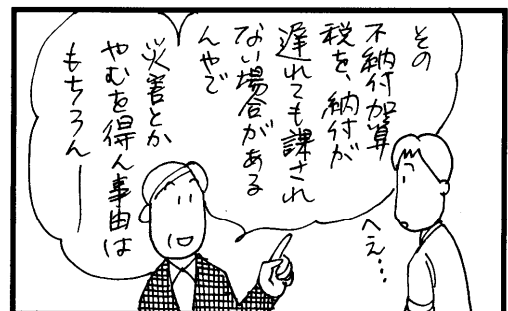 その
不納付加算
税を、納付が
遅れても課され
ない場合がある
んやで
災害とか
やむを得ん事由は
もちろん――
へえ…